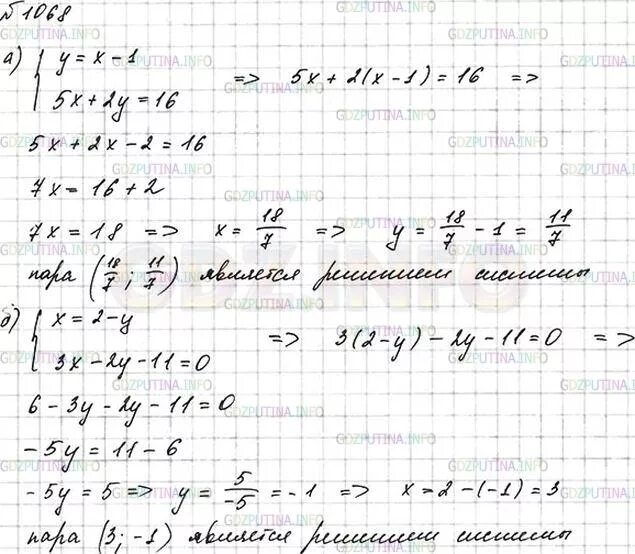 № 1068
а) { y = x - 1
5x + 2y = 16 => 5x + 2(x - 1) = 16 =>
5x + 2x - 2 = 16
7x = 16 + 2
7x = 18 => x = 18/7 => y = 18/7 - 1 = 11/7
пара (18/7; 11/7) является решением системы
б) { x = 2 - y
3x - 2y - 11 = 0 => 3(2 - y) - 2y - 11 = 0 =>
6 - 3y - 2y - 11 = 0
-5y = 11 - 6
-5y = 5 => y = 5/-5 = -1 => x = 2 - (-1) = 3
пара (3; -1) является решением системы